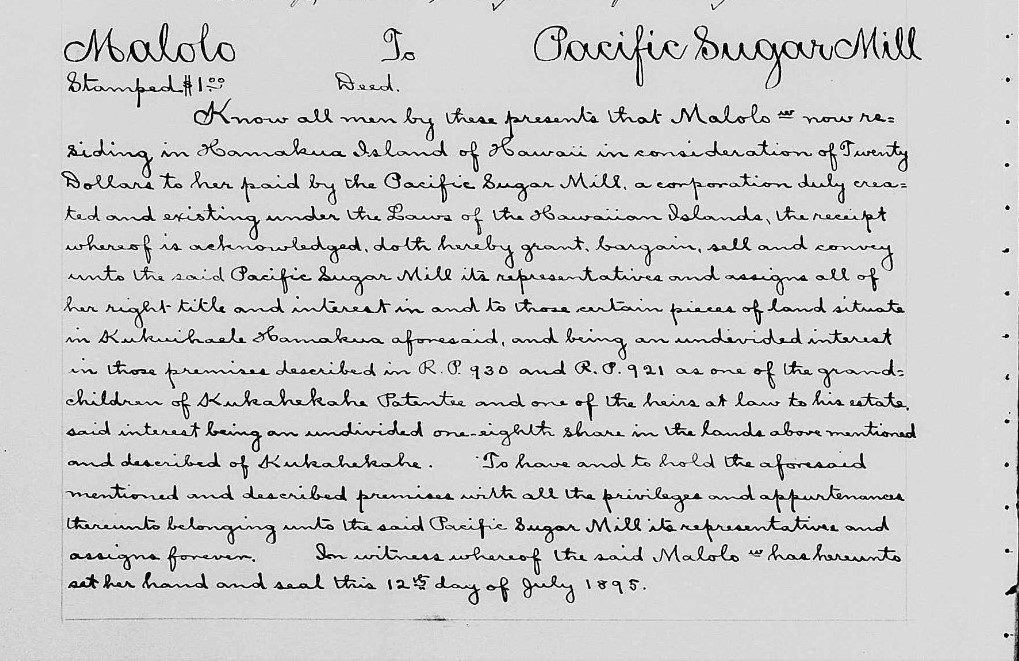 Malolo To Pacific Sugar Mill
Stamped $1.00 Deed.
Know all men by these presents that Malolo w now re=
siding in Hamakua Island of Hawaii in consideration of Twenty
Dollars to her paid by the Pacific Sugar Mill, a corporation duly crea=
ted and existing under the Laws of the Hawaiian Islands, the receipt
whereof is acknowledged, doth hereby grant, bargain, sell and convey
unto the said Pacific Sugar Mill its representatives and assigns all of
her right title and interest in and to those certain pieces of land situate
in Kukuihaele Hamakua aforesaid, and being an undivided interest
in those premises described in R.P. 930 and R.P. 921 as one of the grand=
children of Kukahekahe Patentee and one of the heirs at law to his estate,
said interest being an undivided one-eighth share in the lands above mentioned
and described of Kukahekahe. To have and to hold the aforesaid
mentioned and described premises with all the privileges and appurtenances
thereunto belonging unto the said Pacific Sugar Mill its representatives and
assigns forever. In witness whereof the said Malolo w has hereunto
set her hand and seal this 12th day of July 1895.